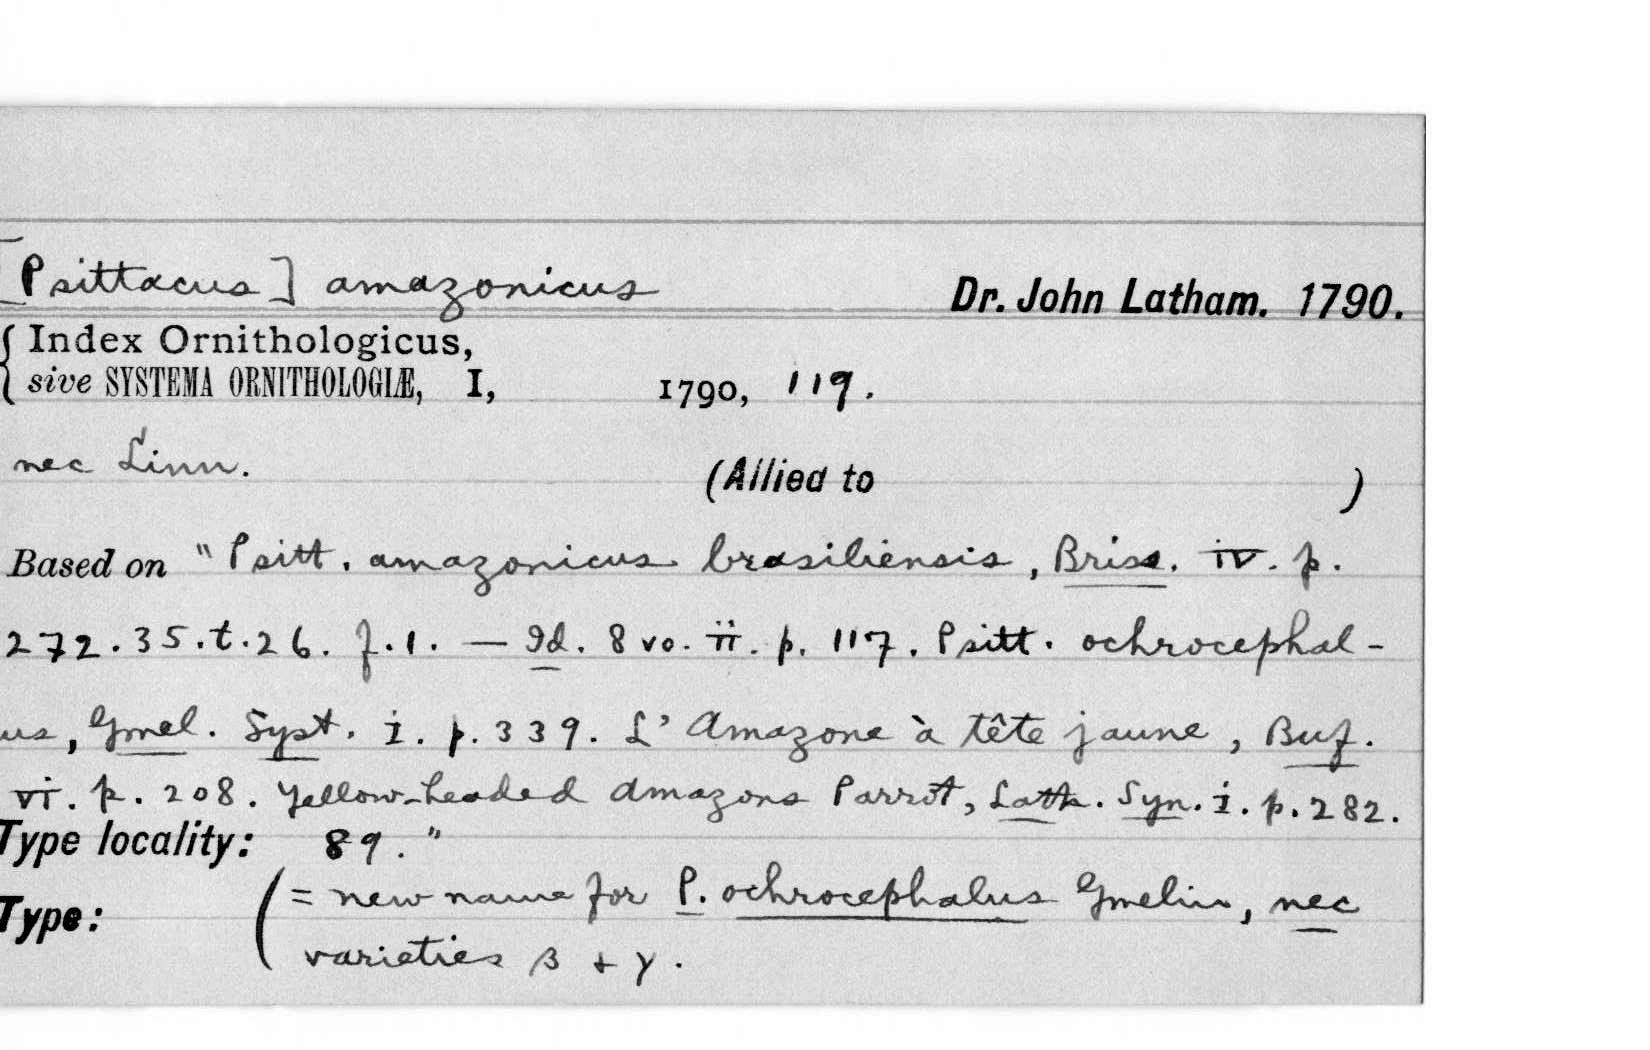 [Psittacus] amazonicus
Dr. John Latham. 1790.
Index Ornithologicus,
sive SYSTEMA ORNITHOLOGIÆ, I, 1790, 119.
nec Linn. (Allied to )
Based on "Psitt. amazonicus brasiliensis, Briss. iv. p.
272.35.t.26. f.1. — Id. 8vo. ii. p. 117. Psitt. ochrocephal-
us, Gmel. Syst. i. p. 339. L'Amazone à tête jaune, Buf.
vi. p. 208. Yellow-headed Amazons Parrot, Lath. Syn. i. p. 282.
Type locality: 89."
Type: (= new name for P. ochrocephalus Gmelin, nec
varieties β + γ.